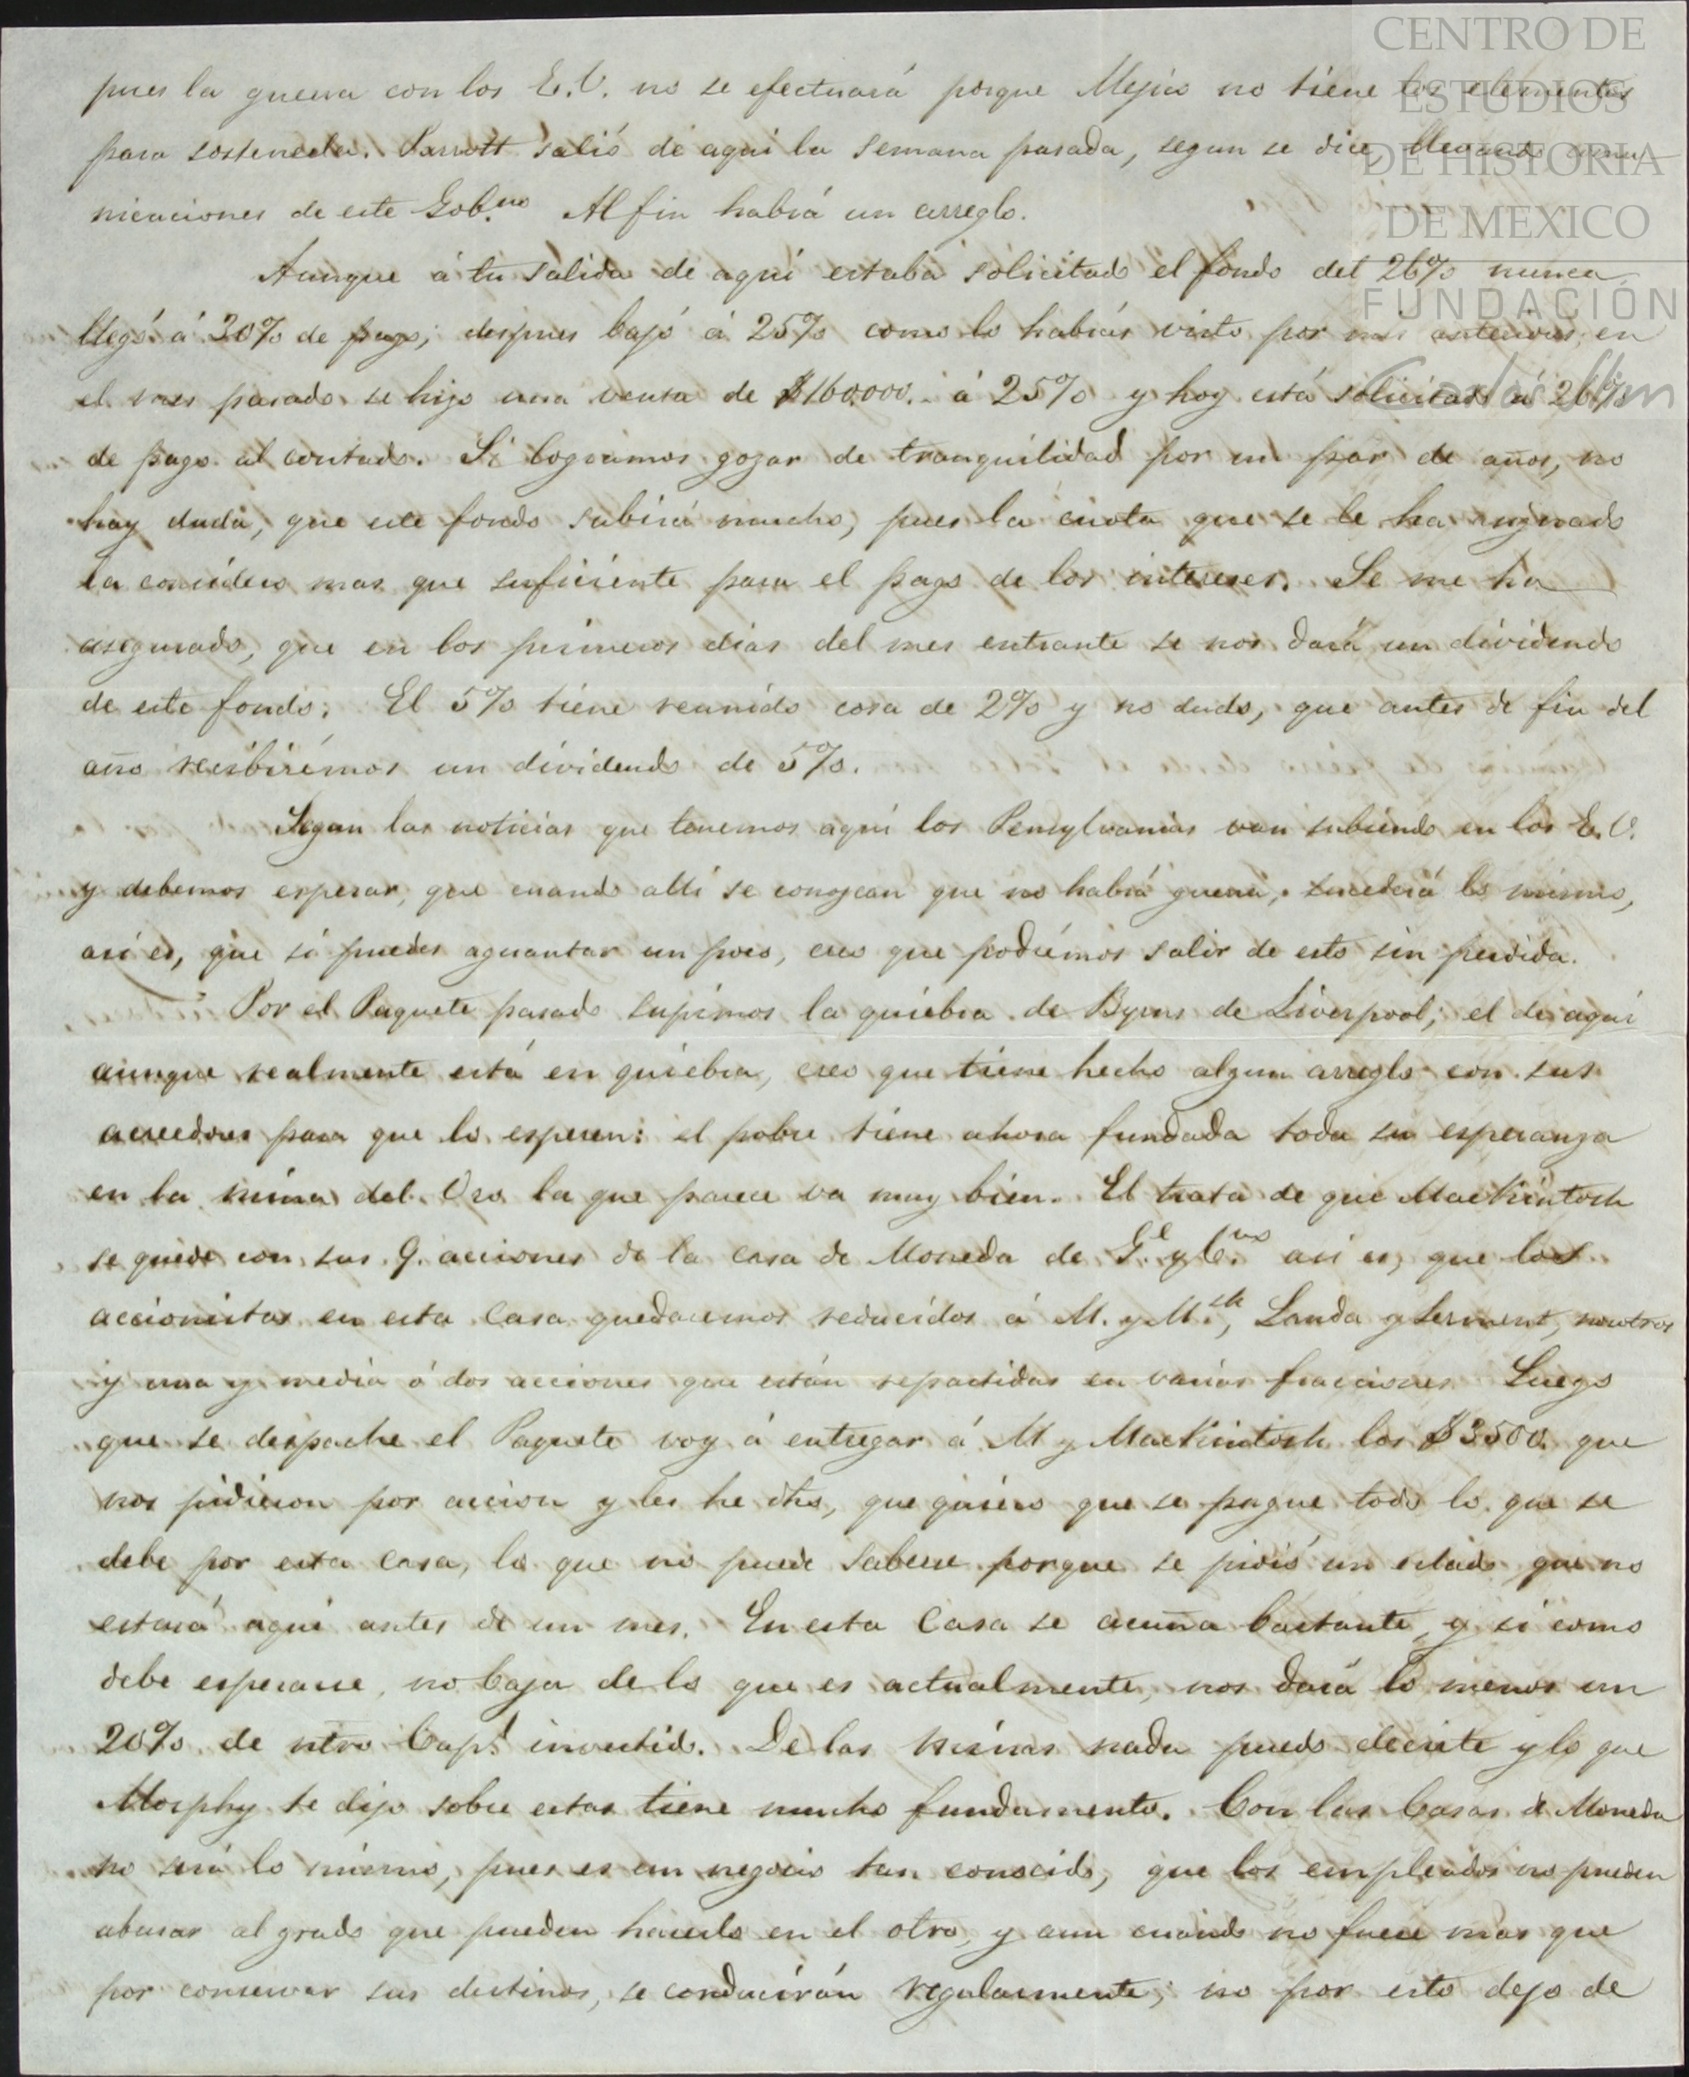 CENTRO DE
ESTUDIOS
DE HISTORIA
DE MEXICO
FUNDACIÓN
Carlos Slim
pues la guerra con los E.U. no se efectuará porque Mejico no tiene los elementos
para sostenerla. Parrott salió de aqui la semana pasada, segun se dice, llevando comu
nicaciones de este Gob.no Al fin habrá un arreglo.
Aunque á tu salida de aqui estaba solicitado el fondo del 26% nunca
llegó á 30% de pago; despues bajó á 25% como lo habrás visto por mis anteriores; en
el mes pasado se hizo una venta de $160000. á 25% y hoy está solicitado á 26%
de pago al contado. Si logramos gozar de tranquilidad por un par de años, no
hay duda, que este fondo subirá mucho, pues la cuota que se le ha asignado
la considero mas que suficiente para el pago de los intereses. Se me ha
asegurado, que en los primeros dias del mes entrante se nos dará un dividendo
de este fondo. El 5% tiene reunido cosa de 2% y no dudo, que antes de fin del
año recibirémos un dividendo de 5%.
Segun las noticias que tenemos aqui los Pensylvanias van subiendo en los E.U.
y debemos esperar, que cuando allí se conozcan que no habrá guerra, sucederá lo mismo,
asi es, que si puedes aguantar un poco, creo que podrémos salir de esto sin perdida.
Por el Paquete pasado supimos la quiebra de Byrns de Liverpool; el de aqui
aunque realmente está en quiebra, creo que tiene hecho algun arreglo con sus
acreedores para que lo esperen: el pobre tiene ahora fundada toda su esperanza
en la mina del Oro la que parece va muy bien. El trata de que MacKintosh
se quede con sus 9. acciones de la casa de Moneda de G.e y C.no asi es, que los
accionistas en esta Casa quedaremos reducidos á M. y M.sh, Landa y Serment, nosotros
y una y media ó dos acciones que están repartidas en varias fracciones. Luego
que se despache el Paquete voy á entregar á M y MacKintosh los $3500. que
nos pidieron por accion y les he dho, que quiero que se pague todo lo que se
debe por esta casa, lo que no puede saberse porque se pidió un estado que no
estará aqui antes de un mes. En esta Casa se acuña bastante, y si como
debe esperarse, no baja de lo que es actualmente, nos dará lo menos un
20% de ntro Cap.l invertido. De las minas nada puedo decirte y lo que
Morphy te dijo sobre estas tiene mucho fundamento. Con las Casas de Moneda
no será lo mismo, pues es un negocio tan conocido, que los empleados no pueden
abusar al grado que pueden hacerlo en el otro, y aun cuando no fuese mas que
por conservar sus destinos, se conducirán regularmente; no por esto dejo de